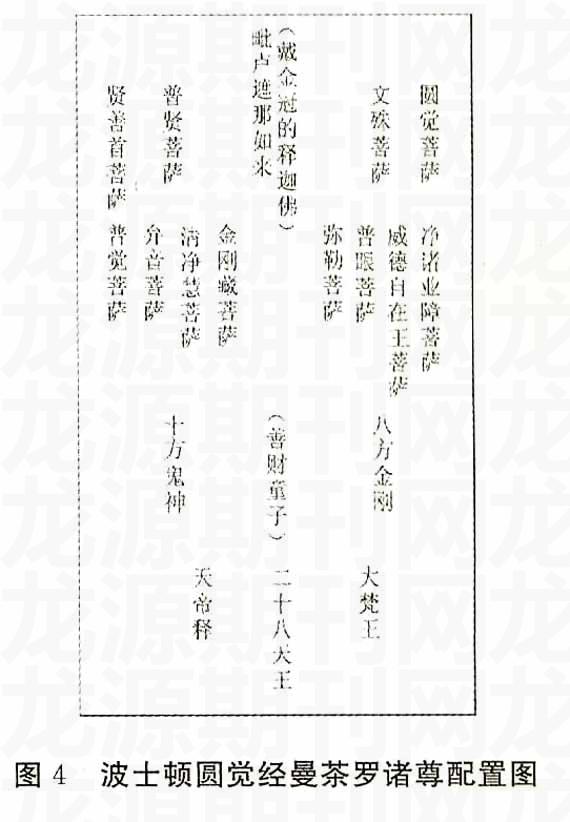 圆觉菩萨
文殊菩萨
(戴金冠的释迦佛)
毗卢遮那如来
普贤菩萨
贤善首菩萨
净诸业障菩萨
威德自在王菩萨
普眼菩萨
弥勒菩萨
金刚藏菩萨
清净慧菩萨
弁音菩萨
普觉菩萨
八方金刚
(善财童子)
十方鬼神
大梵王
二十八天王
天帝释
图 4 波士顿圆觉经曼茶罗诸尊配置图
龙源期刊网